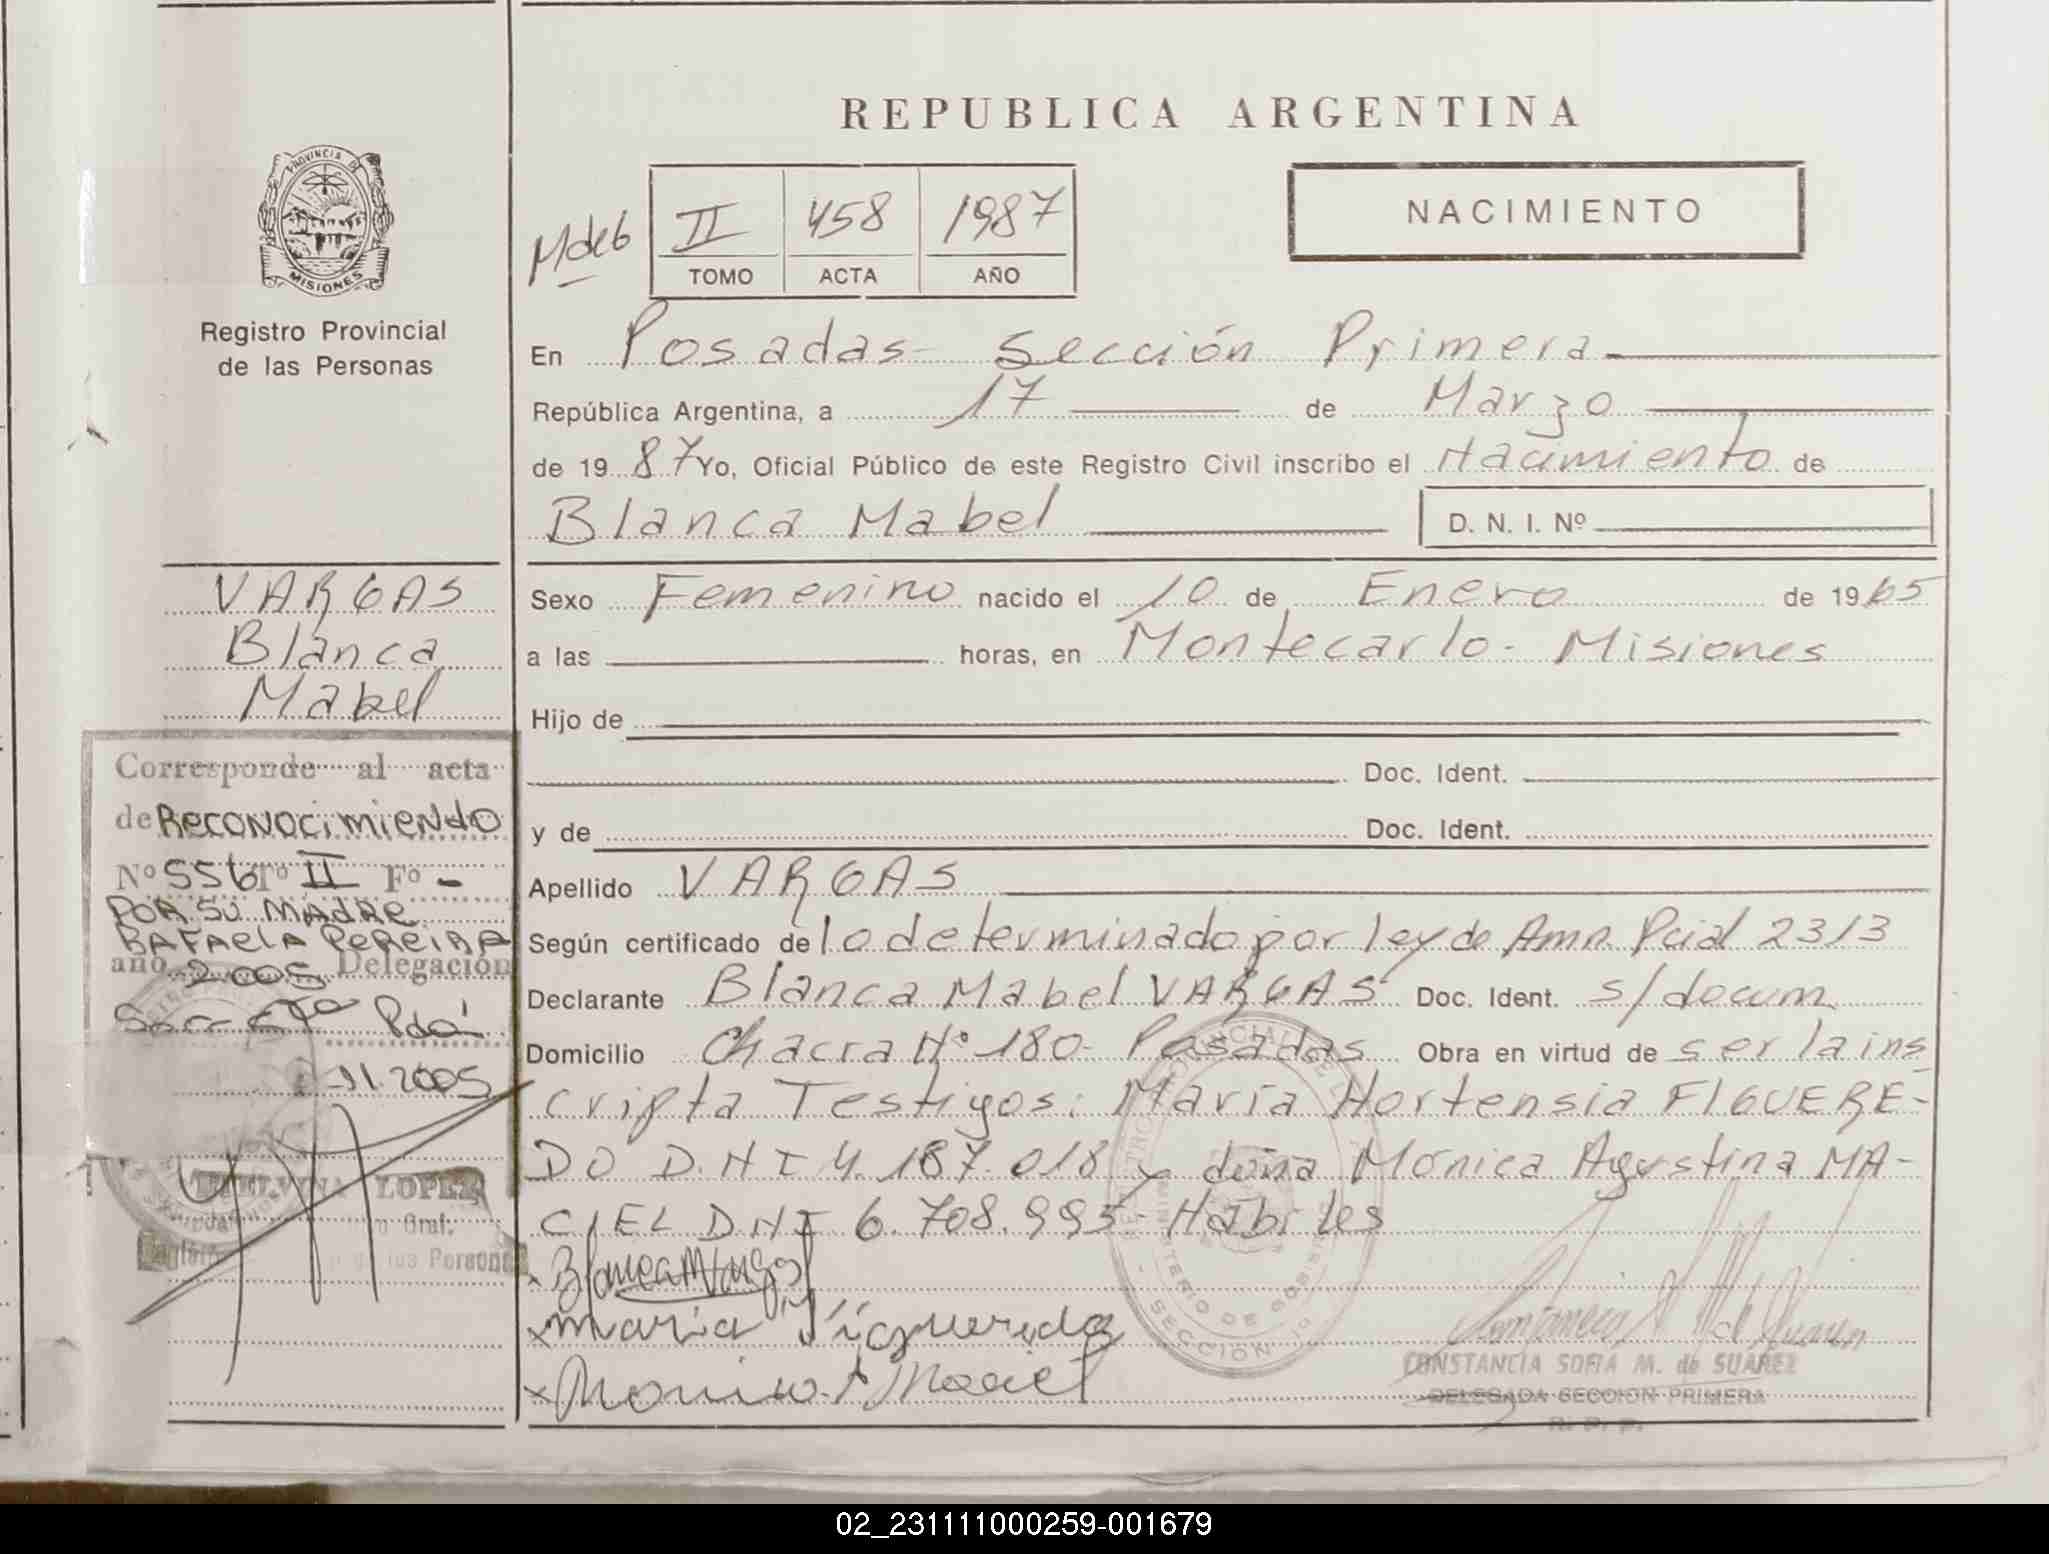 REPUBLICA ARGENTINA
PROVINCIA D
MISIONES
Registro Provincial
de las Personas
II 458 1987
TOMO ACTA AÑO
NACIMIENTO
En Posadas - Sección Primera
República Argentina, a 17 de Marzo
de 1987 Yo, Oficial Público de este Registro Civil inscribo el Nacimiento de
Blanca Mabel D. N. I. Nº
VARGAS
Blanca
Mabel
Sexo Femenino nacido el 10 de Enero de 1965
a las horas, en Montecarlo - Misiones
Hijo de
Doc. Ident.
y de Doc. Ident.
Apellido VARGAS
Según certificado de lo determinado por ley de Amn. Pcial 2313
Declarante Blanca Mabel VARGAS Doc. Ident. s/docum
Domicilio Chacra Nº 180 - Posadas Obra en virtud de ser la ins
cripta Testigos: María Hortensia FIGUERE-
DO D.N.I 4.187.018 y doña Mónica Agustina MA-
CIEL D.N.I 6.708.995 - Hábiles
x Blanca M Vargas
x maria Figueredo
x Monica A Maciel
CONSTANCIA SOFIA M. de SUAREZ
DELEGADA SECCION PRIMERA
R. P. P.
Corresponde al acta
de Reconocimiento
Nº 556 Tº II Fº -
POR SU MADRE
RAFAELA PEREIRA
año 2005 Delegación
Secc 1ra Pdas
11.2005
LOPEZ
02_231111000259-001679